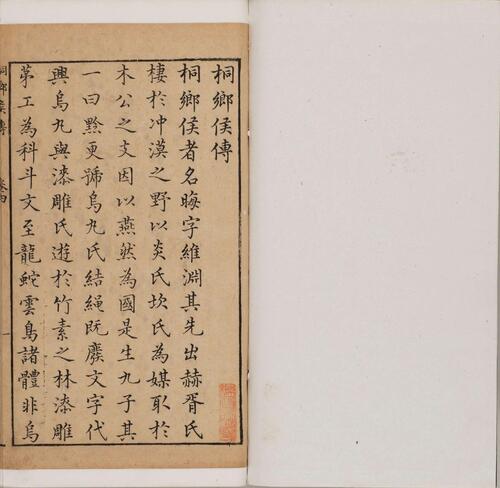 桐鄉侯傳
桐鄉侯者名晦字維淵其先出赫胥氏
棲於冲漠之野以炎氏坎氏為媒取於
木公之支因以燕然為國是生九子其
一曰黔更號烏九氏結繩既廢文字代
興烏九與漆雕氏遊於竹素之林漆雕
苐工為科斗文至龍蛇雲鳥諸體非烏
桐鄉矦傳
卷四
一